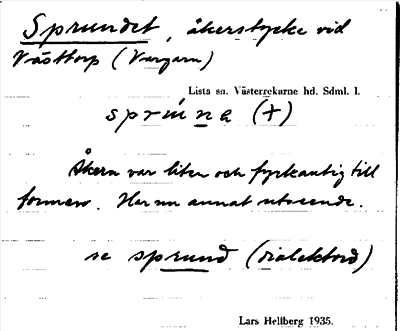 Sprundet, åkerstycke vid
Västtorp (Vargarn)
Lista sn. Västerrekarne hd. Sdml. l.
sprúna (+)
Åkern var liten och fyrkantig till
formen. Har nu annat utseende.
se sprund (dialektord)
Lars Hellberg 1935.